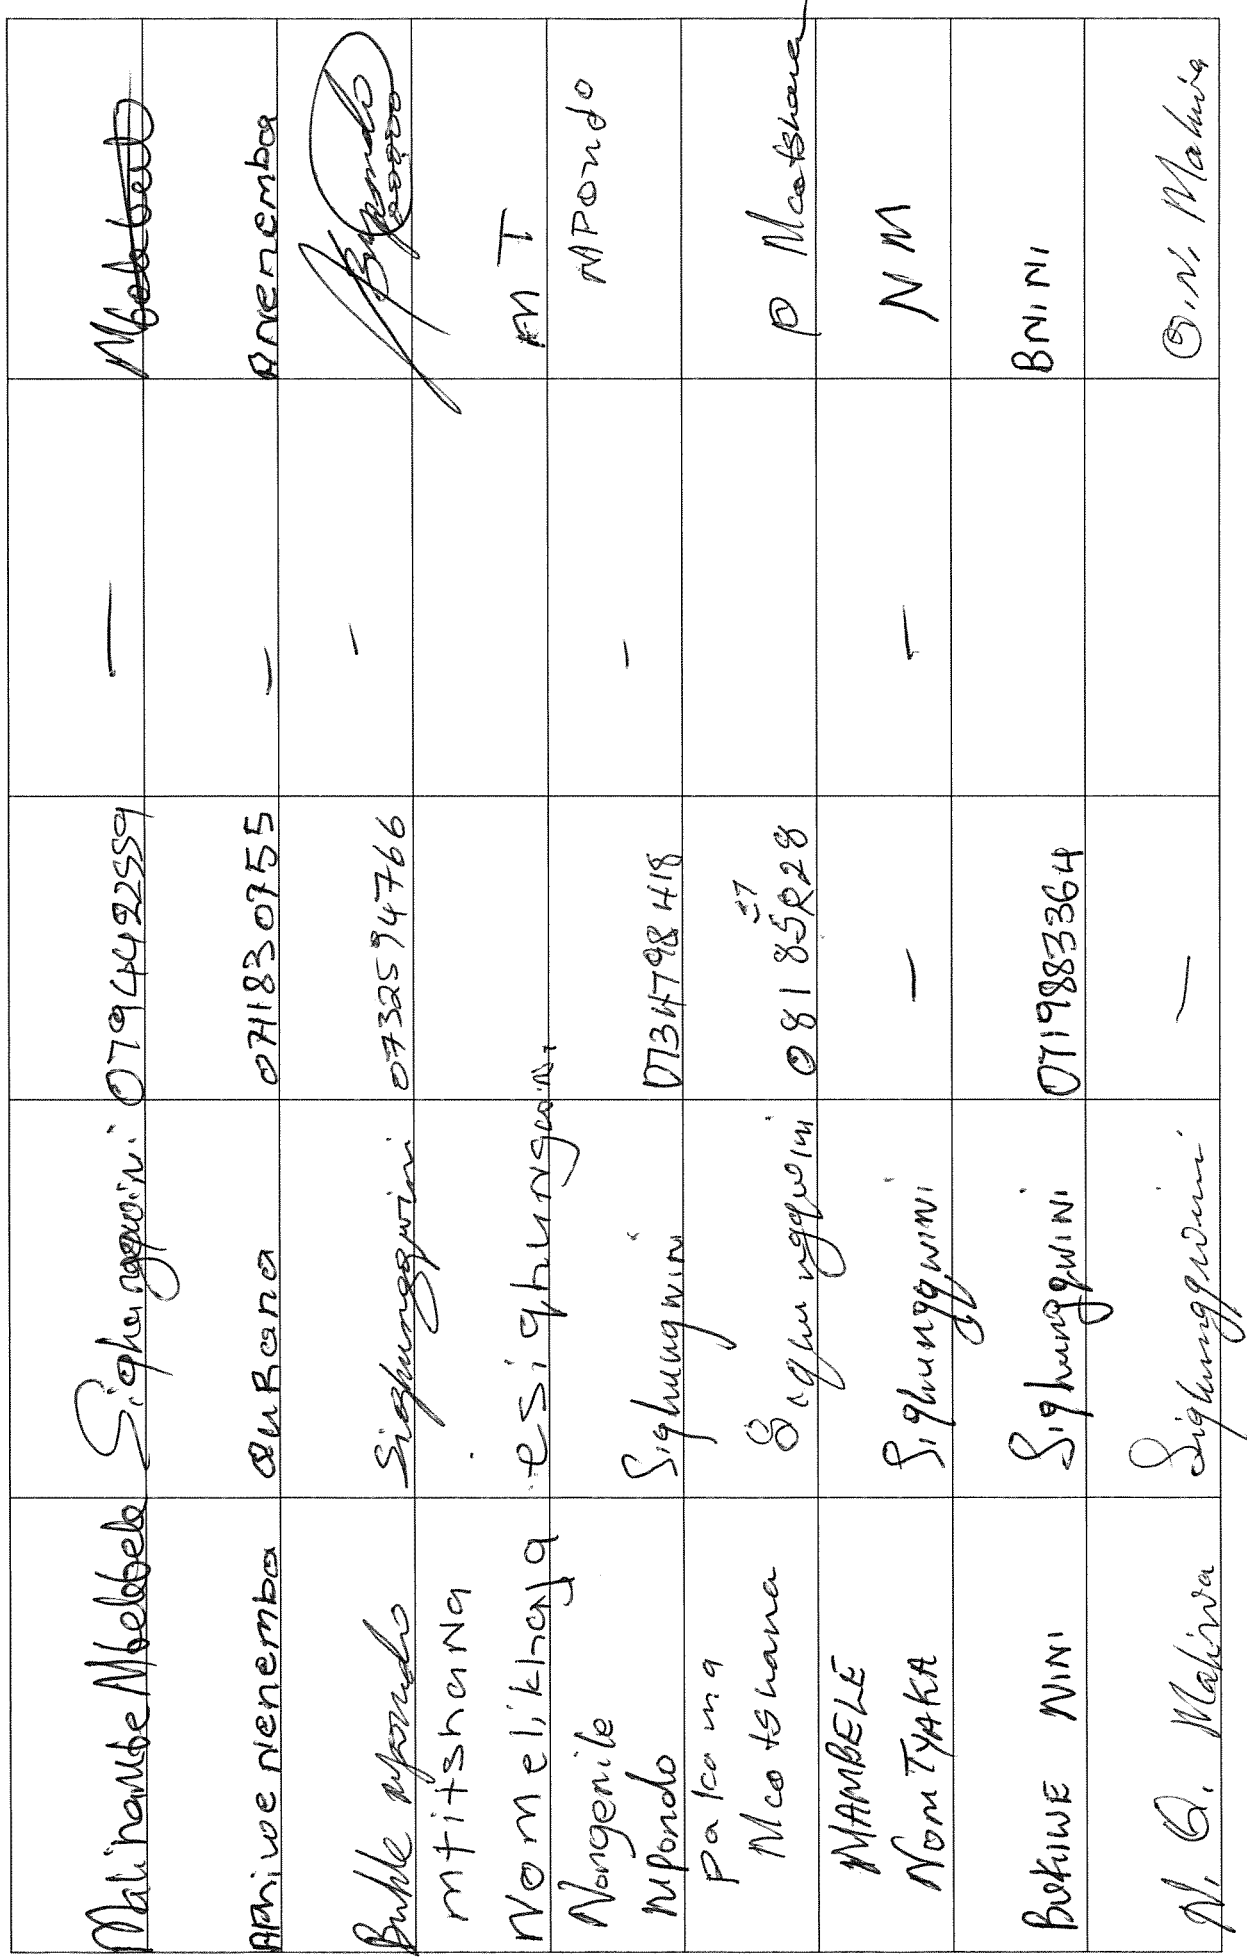 Malihambe Mbebbele Siqhungqwini. 0794492559 —
Aphiwe Nenemba QuRana 071830955 — Anenemba
Buhle Mpondo Siqhungqwini 0732594766 -
Mtitshana
Nomelikhaya esiqhungwini M T
Nongenile
Mpondo Siqhungwini 0734798418 - MPondo
Pakama
Mcotshana Siqhungqwini P Mcotshana
MAMBELE
NomTYAKA Siqhungqwini — — N M
BUKIWE NINI Siqhungqwini 0719883364 BNINI
N. Q. Maliwa Siqhungqwini — Q.N. Maliwa